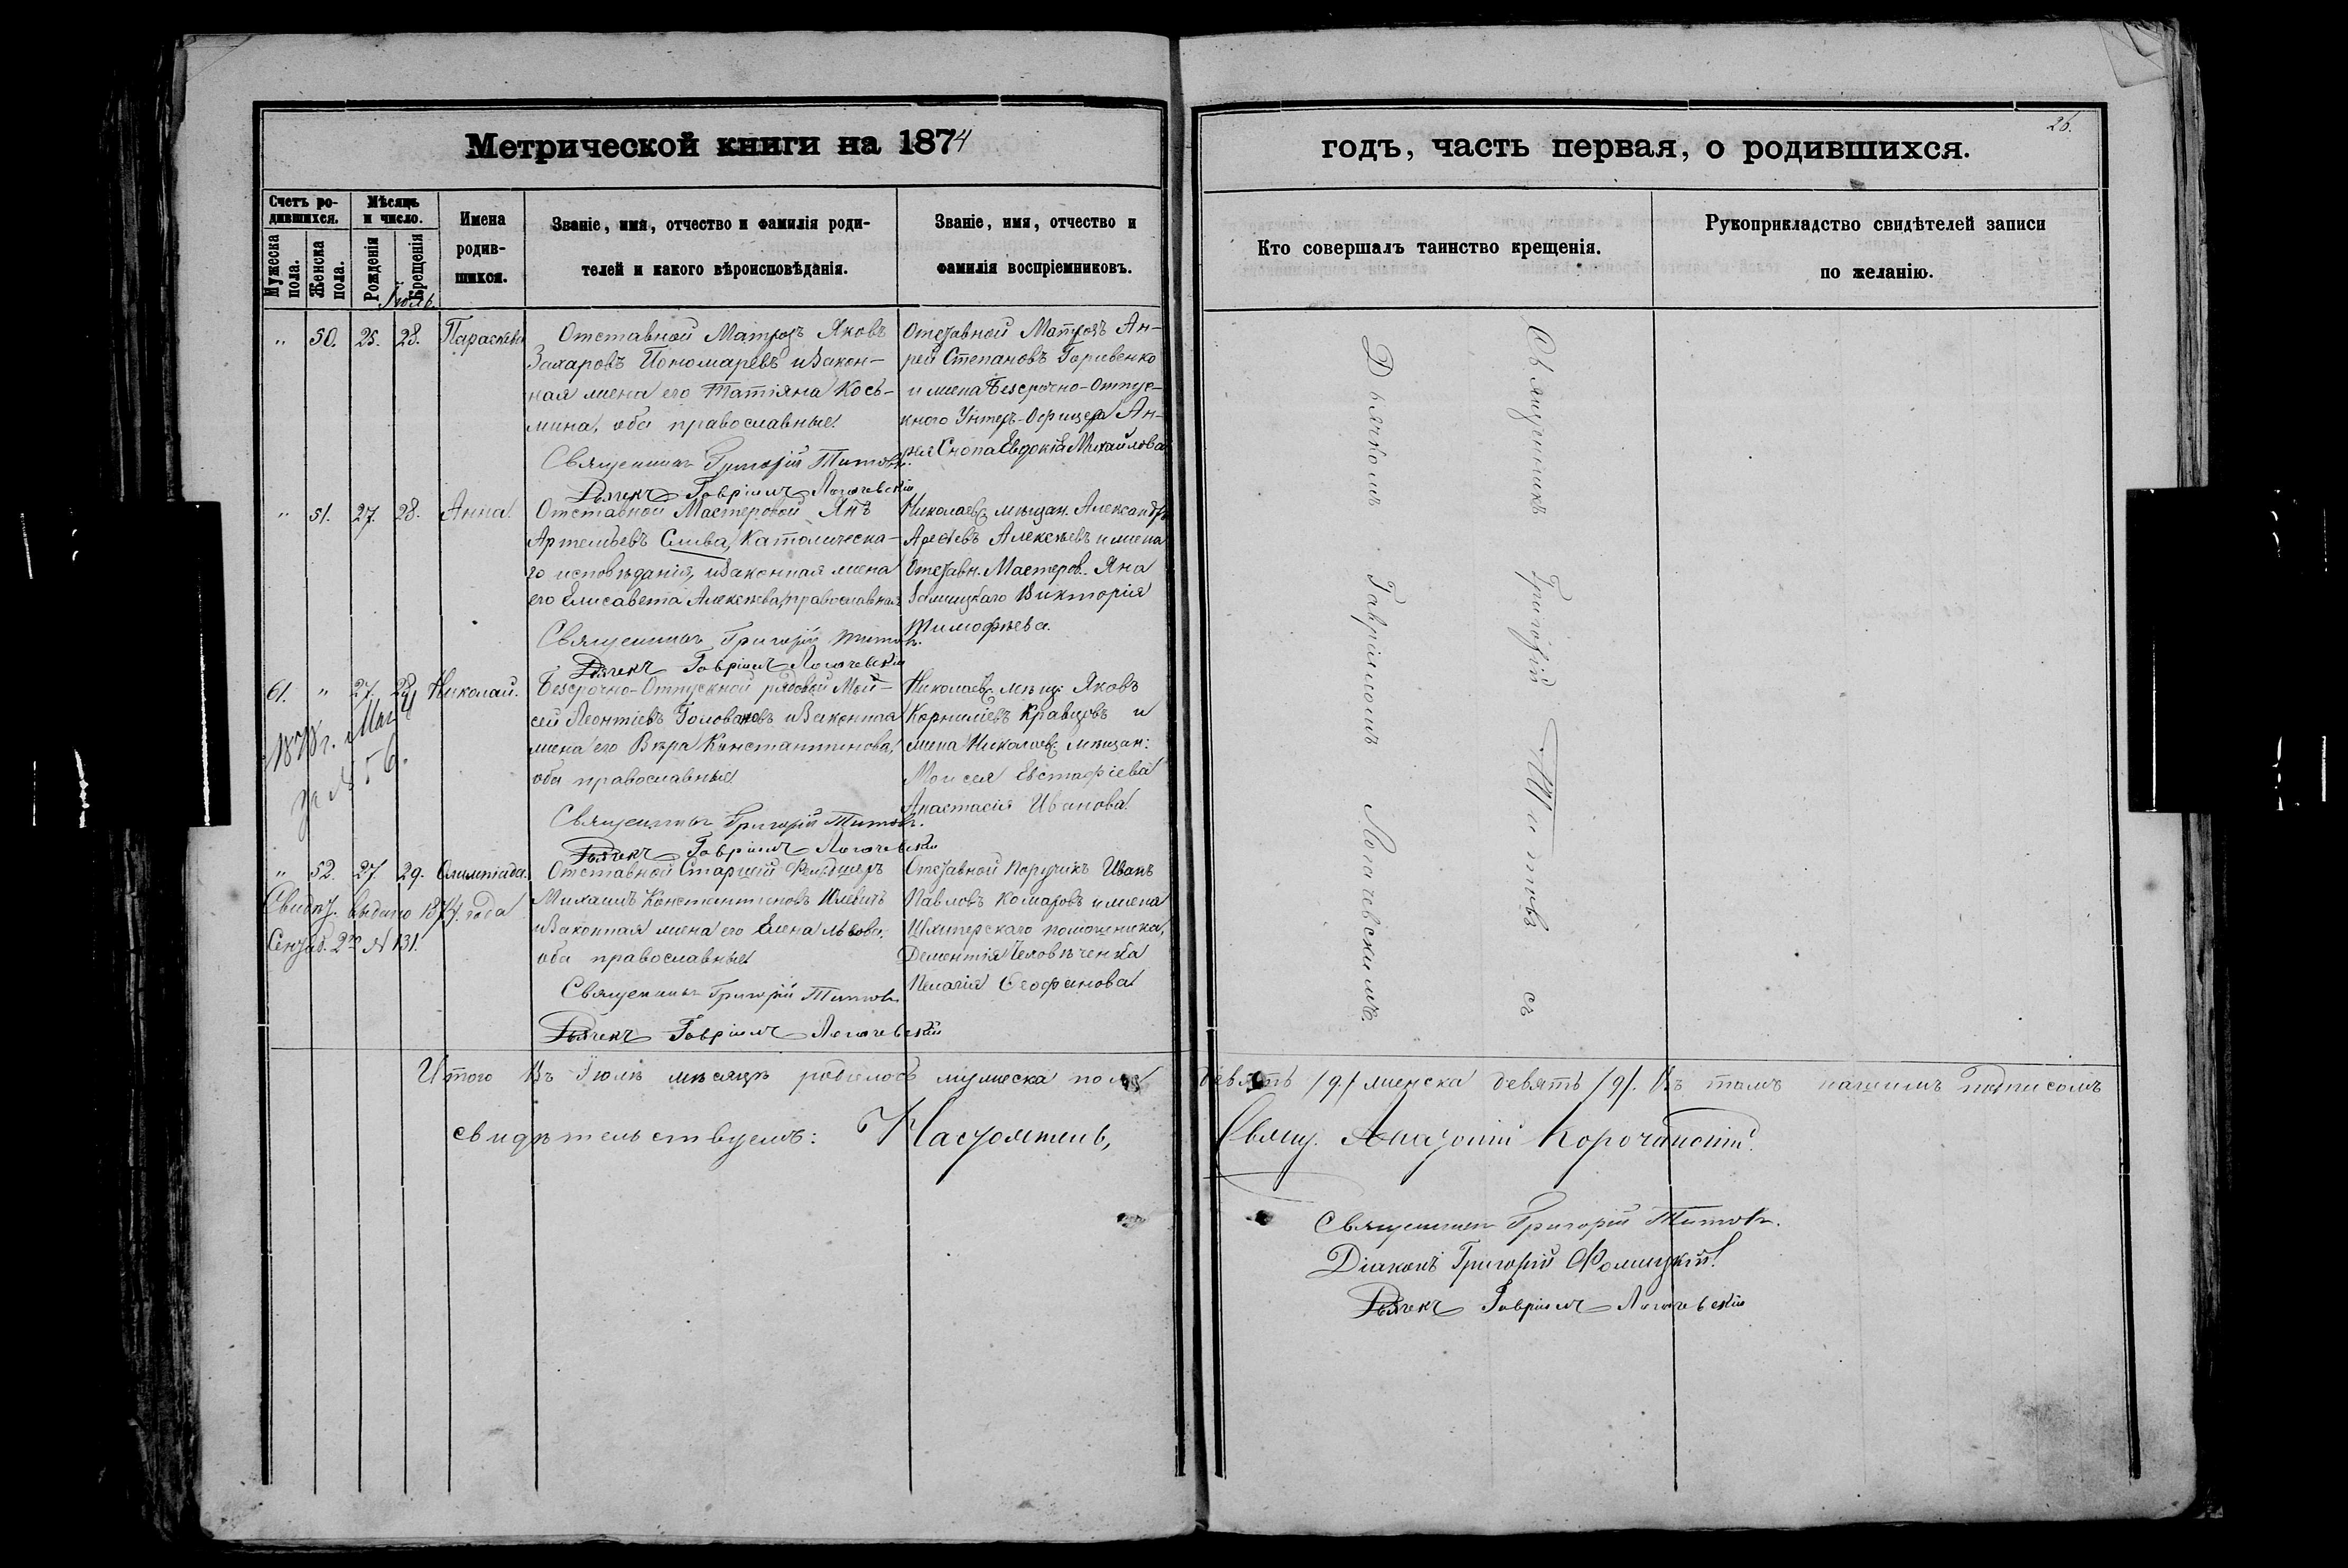 Метрической книги на 1874
годъ, часть первая, о родившихся.
26.
Счетъ ро-
дившихся.
Мужеска пола.
Женска пола.
Мѣсяцъ
и число.
Рожденія
Крещенія
Имена
родив-
шихся.
Званіе, имя, отчество и фамилія роди-
телей и какого вѣроисповѣданія.
Званіе, имя, отчество и
фамилія воспріемниковъ.
Кто совершалъ таинство крещенія.
Рукоприкладство свидѣтелей записи
по желанію.
Іюль
" 50. 25. 28. Параскева
Отставной Матрозъ Яковъ
Захаровъ Пономаревъ и Закон-
ная жена его Татіяна Кось-
мина, оба православные
Священникъ Григорій Титовъ.
Дьячекъ Гавріилъ Логачевскій
Отставной Матрозъ Ан-
рей Степановъ Горивенко
и жена Безсрочно-Отпус-
кного Унтеръ-Офицера Ан-
Снопа Евдокія Михайлова
" 51. 27. 28. Анна.
Отставной Мастеровой Янъ
Артемьевъ Слива, Католическа-
го исповѣданія, и Законная жена
его Елисавета Алексѣева, православная
Священникъ Григорій Титовъ.
Дьячекъ Гавріилъ Логачевскій
Николаевс. мѣщан. Александръ
Арефьевъ Алексѣевъ и жена
Отставн. Мастеров. Яна
Виктория
Тимофѣева.
61. " 27. 29 Николай.
Безсрочно-Отпускной рядовой Мой-
сей Леонтіевъ Головановъ и Законная
жена его Вѣра Константинова,
оба православные
Священникъ Григорій Титовъ.
Дьячекъ Гавріилъ Логачевскій
Николаевс. мѣщ. Яковъ
Корниліевъ Кравцовъ и
жена Николаевс. мѣщан:
Моисея Евстафіева
Анастасія Иванова
1878 г. Мая
за № 56.
" 52. 27 29. Олимпіада.
Отставной Старшій Фельдшеръ
Михаилъ Константиновъ
и Законная жена его Елена Львова,
оба православные
Священникъ Григорій Титовъ
Дьячекъ Гавріилъ Логачевскій
Отставной Поручикъ Иванъ
Павловъ Комаровъ и жена
Шхиперскаго помощника,
Дементія Человѣченка
Пелагія Феофанова
Свидѣт. выдано 1874. года
Сентяб. 2го № 131.
Священникъ Григорій Титовъ съ
Дьячкомъ Гавріиломъ Логачевскимъ.
Итого Въ Іюлѣ мѣсяцѣ родилось мужеска пола девять /9/ женска девять /9/. Въ томъ нашимъ подписомъ
свидѣтельствуемъ: Настоятель, Свящ. Анатолій Корочанскій
Священникъ Григорій Титовъ.
Діаконъ Григорій Фомицкій
Дьячекъ Гавріилъ Логачевскій